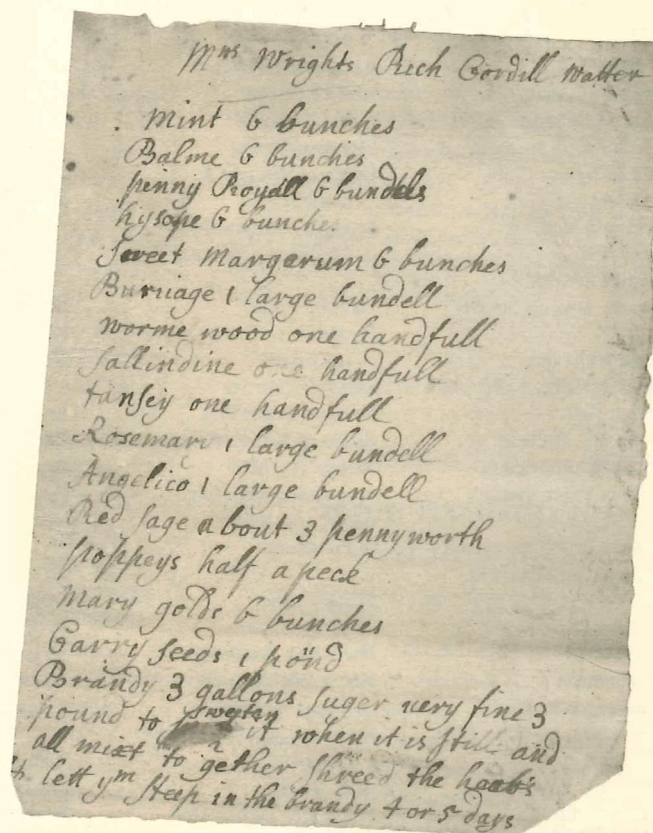 Mrs Wrights Rich Cordill Watter
Mint 6 bunches
Balme 6 bunches
penny Royall 6 bundels
hysope 6 bunches
Sweet Margerum 6 bunches
Burriage 1 large bundell
worme wood one handfull
Sallindine one handfull
tansey one handfull
Rosemary 1 large bundell
Angelico 1 large bundell
Red sage about 3 pennyworth
poppeys half a peck
Mary golds 6 bunches
Carry seeds 1 pound
Brandy 3 gallons suger very fine 3
pound to sweeten it when it is still and
all mixt to gether shreed the hearbs
& lett ym steep in the brandy 4 or 5 days